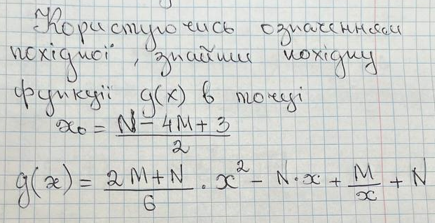 Користуючись означенням
похідної, знайти похідну
функції g(x) в точці
x₀ = (N - 4M + 3) / 2
g(x) = (2M + N) / 6 · x² - N·x + M/x + N